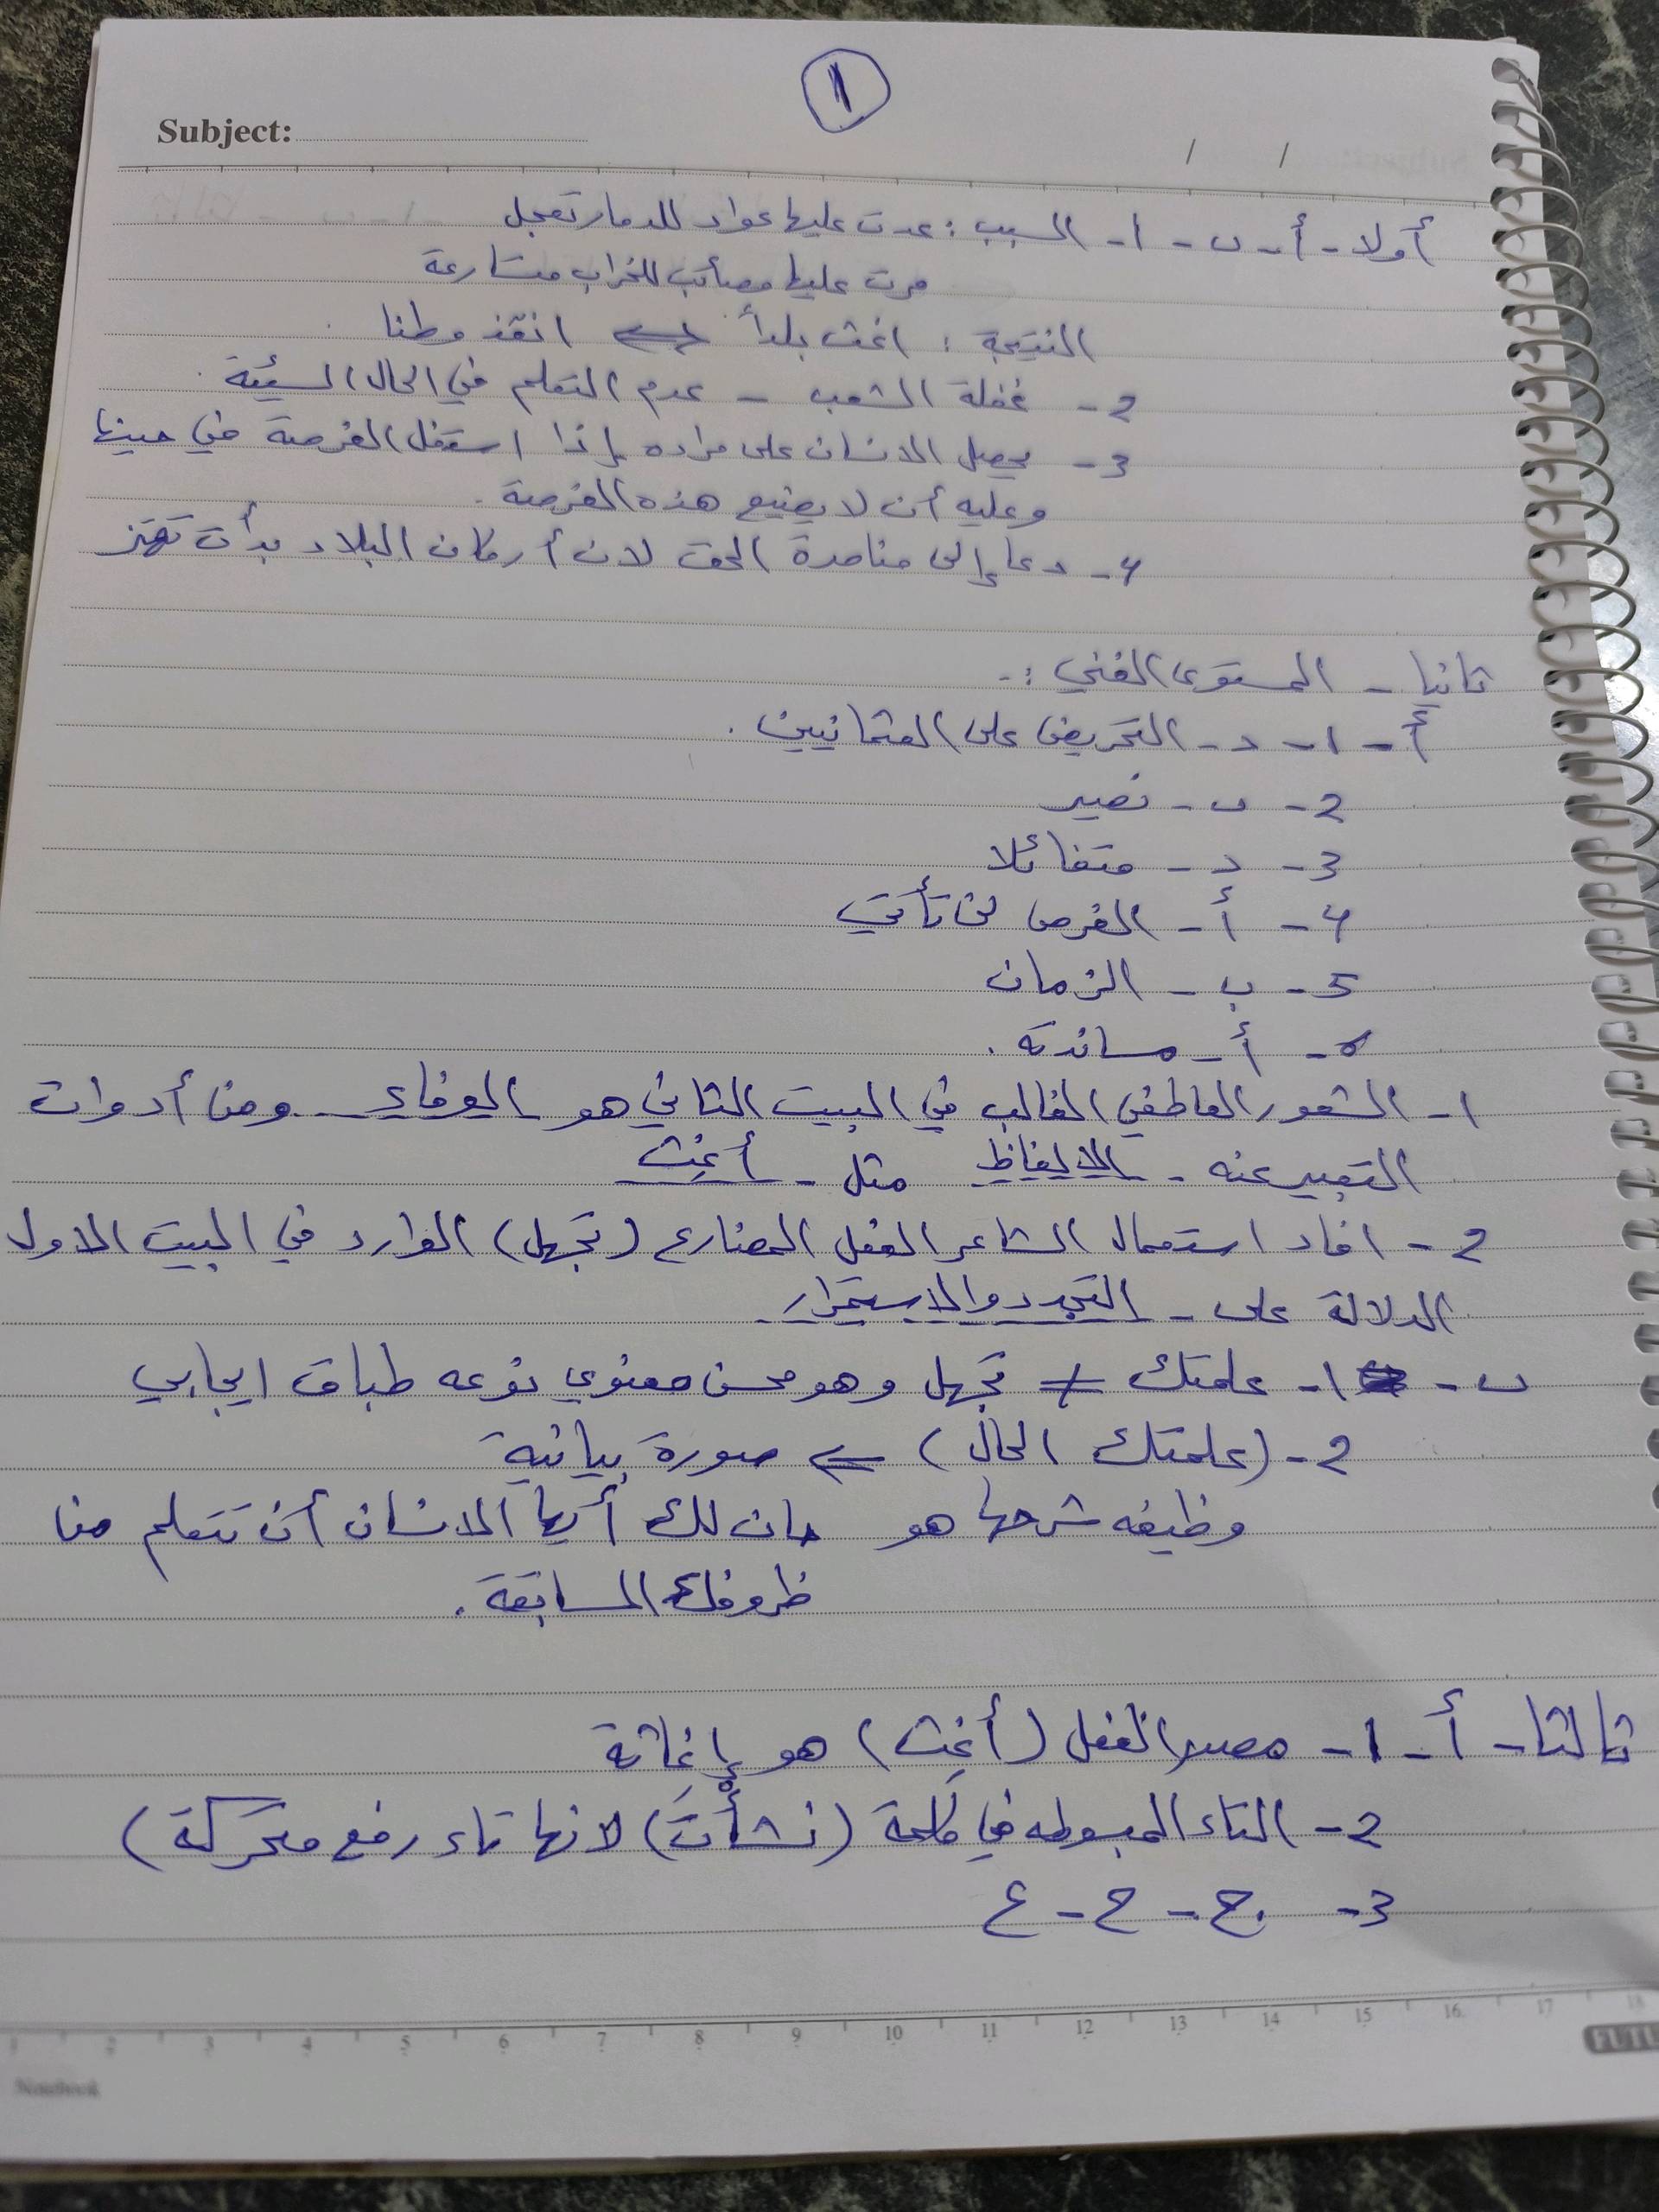 1
Subject:
/ /
أولا - أ - ب - 1 - السبب : عدت عليها عواد للدمار تعجل
مرت عليها مصائب للخراب متسارعة
النتيجة : اغث بلداً ⇐ انقذ وطنا .
2 - غفلة الشعب - عدم التعلم في الحال السيئة .
3 - يحصل الانسان على مراده إذا استغل الفرصة في حينها
وعليه أن لا يضيع هذه الفرصة .
4 - دعا إلى مناصرة الحق لان أركان البلاد بدأت تهتز
ثانيا - المستوى الفني :-
أ - 1 - د - التحريض على العثمانيين .
2 - ب - نصير
3 - د - متفائلا
4 - أ - الفرص لن تأتي
5 - ب - الزمان
6 - أ - مساندته .
1 - الشعور العاطفي الغالب في البيت الثاني هو الوفاء ومن أدوات
التعبير عنه - الالفاظ مثل - أغِث
2 - افاد استعمال الشاعر الفعل المضارع (تجهل) الوارد في البيت الاول
الدلالة على - التجدد والاستمرار .
ب - 1 - علمتك ≠ تجهل وهو محسن معنوي نوعه طباق ايجابي
2 - (علمتك الحال) ⇐ صورة بيانية
وظيفه شرحها هو حان لك أيها الانسان أن تتعلم من
ظروفك السابقة .
ثالثا - أ - 1 - مصدر الفعل (أغِث) هو إغاثة
2 - التاء المبسوطه في كلمة (نشأْتَ) لانها تاء رفع متحركة)
3 - ج - ح - ع
1 2 3 4 5 6 7 8 9 10 11 12 13 14 15 16 17 18
Notebook